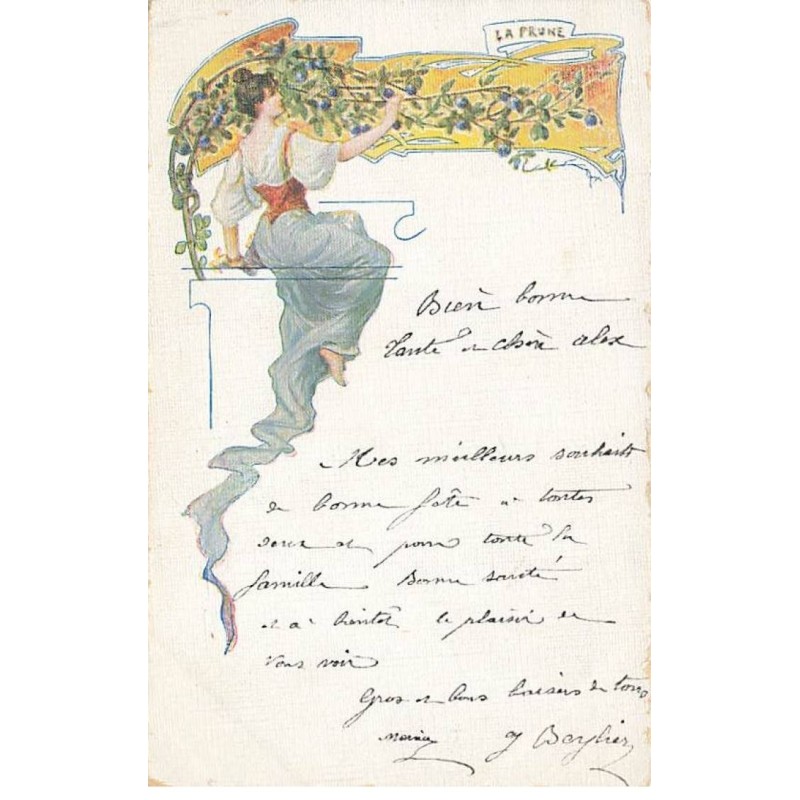 LA PRUNE
Bien bonne
Tante et chère alex
Mes meilleurs souhaits
de bonne fête à toutes
deux et pour toute la
famille Bonne santé
et à bientôt le plaisir de
vous voir
Gros et bons baisers de tous